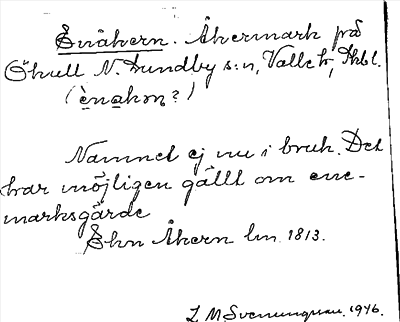 Enåkern. Åkermark på
Ökull N. Lundby s:n, Valle h, Skbl.
(ènakən?)
Namnet ej nu i bruk. Det
har möjligen gällt om ene-
marksgärde
Ehn Åkern lm 1813.
L M Svenungsson. 1946.